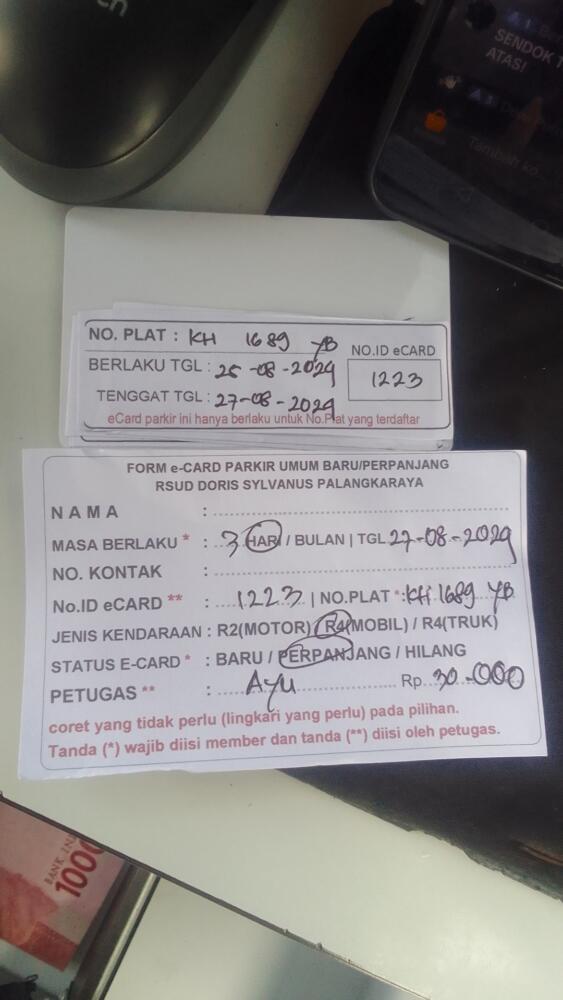 SENDOK
ATAS!
Tambah ko...
NO. PLAT : KH 1689 YB
NO.ID eCARD
1223
BERLAKU TGL : 25-08-2024
TENGGAT TGL : 27-08-2024
eCard parkir ini hanya berlaku untuk No.Plat yang terdaftar
FORM e-CARD PARKIR UMUM BARU/PERPANJANG
RSUD DORIS SYLVANUS PALANGKARAYA
NAMA :
MASA BERLAKU * : 3 HARI / BULAN | TGL 27-08-2024
NO. KONTAK :
No.ID eCARD ** : 1223 | NO.PLAT *: KH 1689 YB
JENIS KENDARAAN : R2(MOTOR) / R4(MOBIL) / R4(TRUK)
STATUS E-CARD * : BARU / PERPANJANG / HILANG
PETUGAS ** : Ayu Rp. 30.000
coret yang tidak perlu (lingkari yang perlu) pada pilihan.
Tanda (*) wajib diisi member dan tanda (**) diisi oleh petugas.
BANK IN
1000